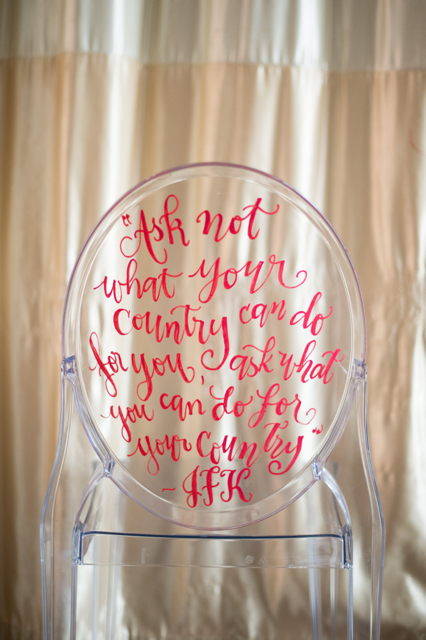 "Ask not
what your
country can do
for you, ask what
you can do for
your country"
~JFK